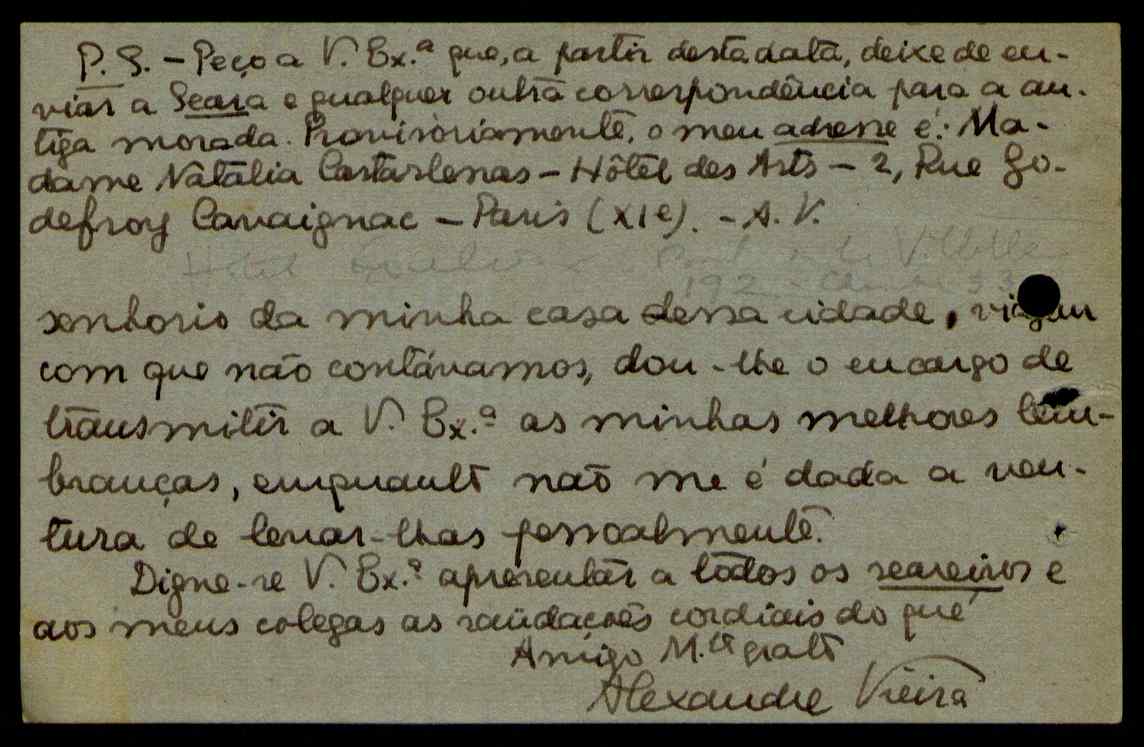 P. S. – Peço a V. Ex.ª que, a partir desta data, deixe de en-
viar a Seara e qualquer outra correspondência para a an-
tiga morada. Provisòriamente, o meu adresse é: Ma-
dame Natália Castarlenas – Hôtel des Arts – 2, Rue Go-
defroy Cavaignac – Paris (XIe). – A. V.
Hotel
192
senhorio da minha casa dessa cidade, viagem
com que não contávamos, dou-lhe o encargo de
transmitir a V. Ex.ª as minhas melhores lem-
branças, enquanto não me é dada a ven-
tura de levar-lhas pessoalmente.
Digne-se V. Ex.ª apresentar a todos os seareiros e
aos meus colegas as saüdações cordiais do que é
Amigo M.to grato
Alexandre Vieira